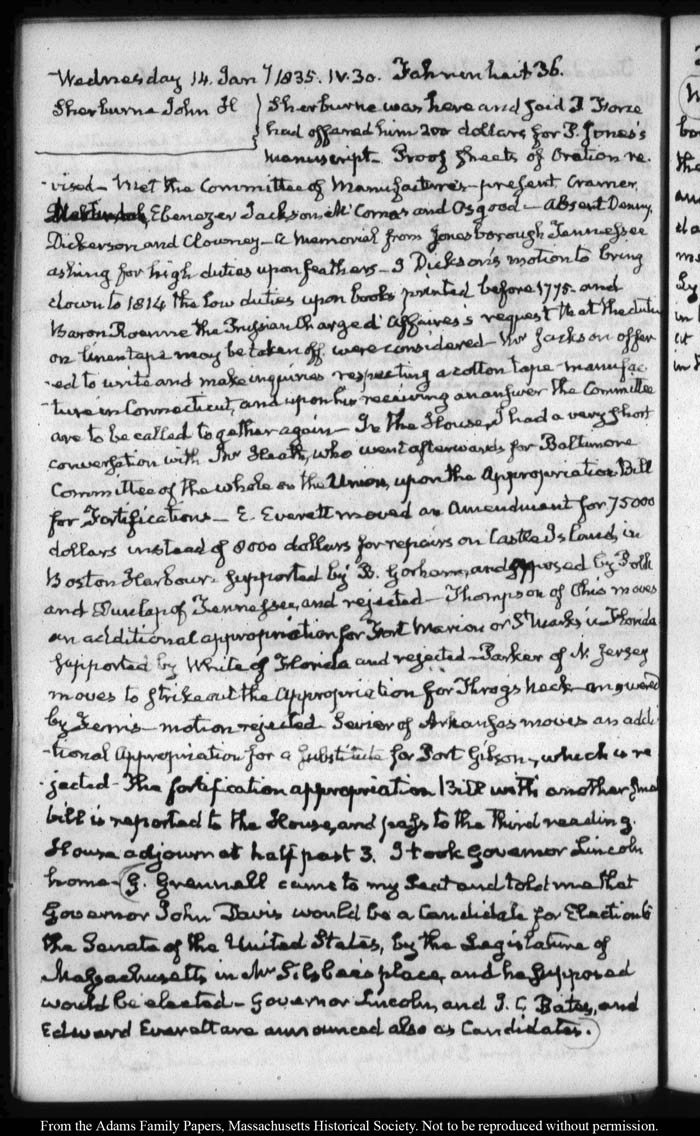 Wednesday 14. Jany 1835. IV.30. Fahrenheit 36.
Sherburne John H
Sherburne was here and said P Force
had offered him 200 dollars for P. Jones's
manuscript. Proof sheets of Oration re-
-vised— Met the Committee of Manufactures— present, Cramer,
Ebenezer Jackson, McComas and Osgood— Absent Denny,
Dickerson and Clowney— a Memorial from Jonesborough Tennessee
asking for high duties upon feathers— Dickson's motion to bring
down to 1814 the low duties upon books printed before 1775— and
Baron Roenne the Prussian Chargé d'Affaires's request that the duty
on linen tape may be taken off were considered— Mr Jackson offer-
-ed to write and make inquiries respecting a cotton tape manufac-
-ture in Connecticut, and upon his receiving an answer the Committee
are to be called together again— In the House, I had a very short
conversation with Mr Heath, who went afterwards for Baltimore
Committee of the whole on the Union, upon the Appropriation Bill
for Fortifications— E. Everett moved an Amendment for 75000
dollars instead of 8000 dollars for repairs on Castle Island, in
Boston Harbour. Supported by B. Gorham, and opposed by Polk
and Dunlap of Tennessee, and rejected— Thompson of Ohio moves
an additional appropriation for Fort Marion or St Marks in Florida
supported by White of Florida and rejected— Parker of N. Jersey
moves to strike out the Appropriation for Throgs neck— answered
by Ferris— motion rejected Sevier of Arkansas moves an addi-
-tional Appropriation for a substitute for Fort Gibson, which is re
-jected— The fortification appropriation Bill with another small
bill is reported to the House, and pass to the third reading.
House adjourn at half past 3. I took Governor Lincoln
home— G. Grennell came to my seat and told me that
Governor John Davis would be a Candidate for Election to
the Senate of the United States, by the Legislature of
Massachusetts in Mr Silsbee's place, and he supposed
would be elected— Governor Lincoln, and I. C. Bates, and
Edward Everett are announced also as Candidates.
From the Adams Family Papers, Massachusetts Historical Society. Not to be reproduced without permission.